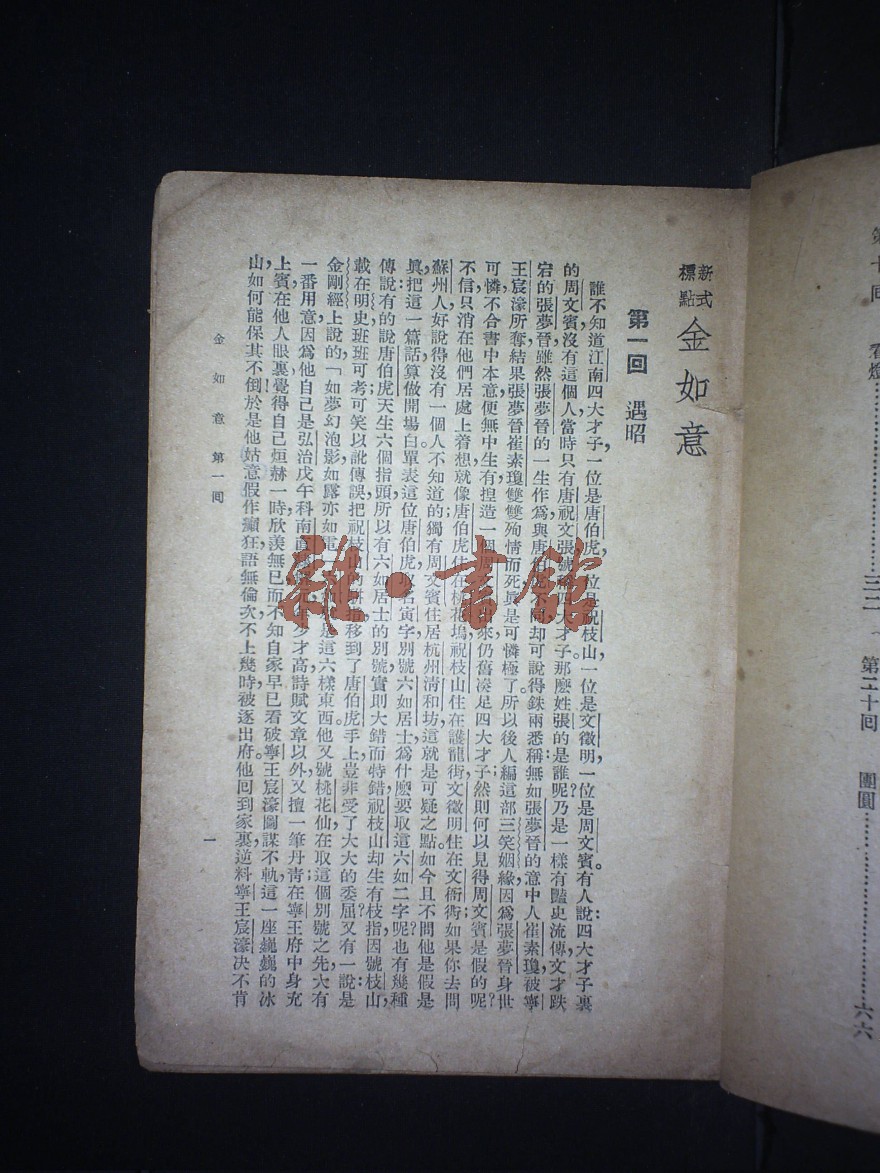 新式標點 金如意
第一回 遇昭
誰不知道江南四大才子,一位是唐伯虎,一位是祝枝山,一位是文徵明,一位是周文賓。有人說:四大才子裏
的周文賓,沒有這個人,當時只有唐祝文張,號稱四大才子。那麼姓張的是誰呢?乃是一樣有豔史流傳,文才跌
宕的張夢晉。雖然張夢晉的一生作爲,與唐伯虎不同,却可說得銖兩悉稱,無如張夢晉的意中人崔素瓊,被寧
王宸濠所奪,結果張夢晉崔素瓊雙雙殉情而死,眞是可憐極了。所以後人編這部三笑姻緣,因爲張夢晉身世
可憐,不合書中本意,便無中生有,揑造一個周文賓出來,仍舊湊足四大才子。然則何以見得周文賓是假的呢?
不信只消在他們居處上着想,就像唐伯虎住在桃花塢,祝枝山住在護龍街,文徵明住在文衙衖,如果你去問
蘇州人,好說得沒有一個人不知道的,獨有周文賓住居杭州淸和坊,這就是可疑之點。如今且不問他是假是
眞,把這一篇話算做開場白。單表這位唐伯虎,取名寅字,別號六如居士,爲什麼要取這六如二字呢?也有幾種
傳說:有的說唐伯虎天生六個指頭,所以有六如居士的別號,實則大錯而特錯,祝枝山却生有枝指,因號枝山,
載在明史,班班可考,可笑以訛傳誤,把祝枝山的 指移到了唐伯虎手上,豈非受了大大的委屈?又有一說:是
金剛經上說的「如夢幻泡影,如露亦如電」 是這六樣東西。他又號桃花仙,在取這個別號之先,大有
一番用意,因爲他自己是弘治戊午科南直 少才高,詩賦文章以外,又擅一筆丹靑,在寧王府中身充
上賓,在他人眼裏,覺得自己烜赫一時,欣羨無已,而不知自家早已看破寧王宸濠圖謀不軌,這一座巍巍的冰
山,如何能保其不倒!於是他姑意假作癲狂,語無倫次,不上幾時,被逐出府。他回到家裏,逆料寧王宸濠决不肯
金如意 第一回
一
雜·書館
第十回 看燈……………………三二
第二十回 團圓……………………六六